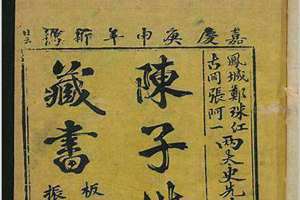 嘉慶庚申年新鐫
鳳城鄭珠江
古岡張阿一
兩太史先
陳子
藏書
板
振